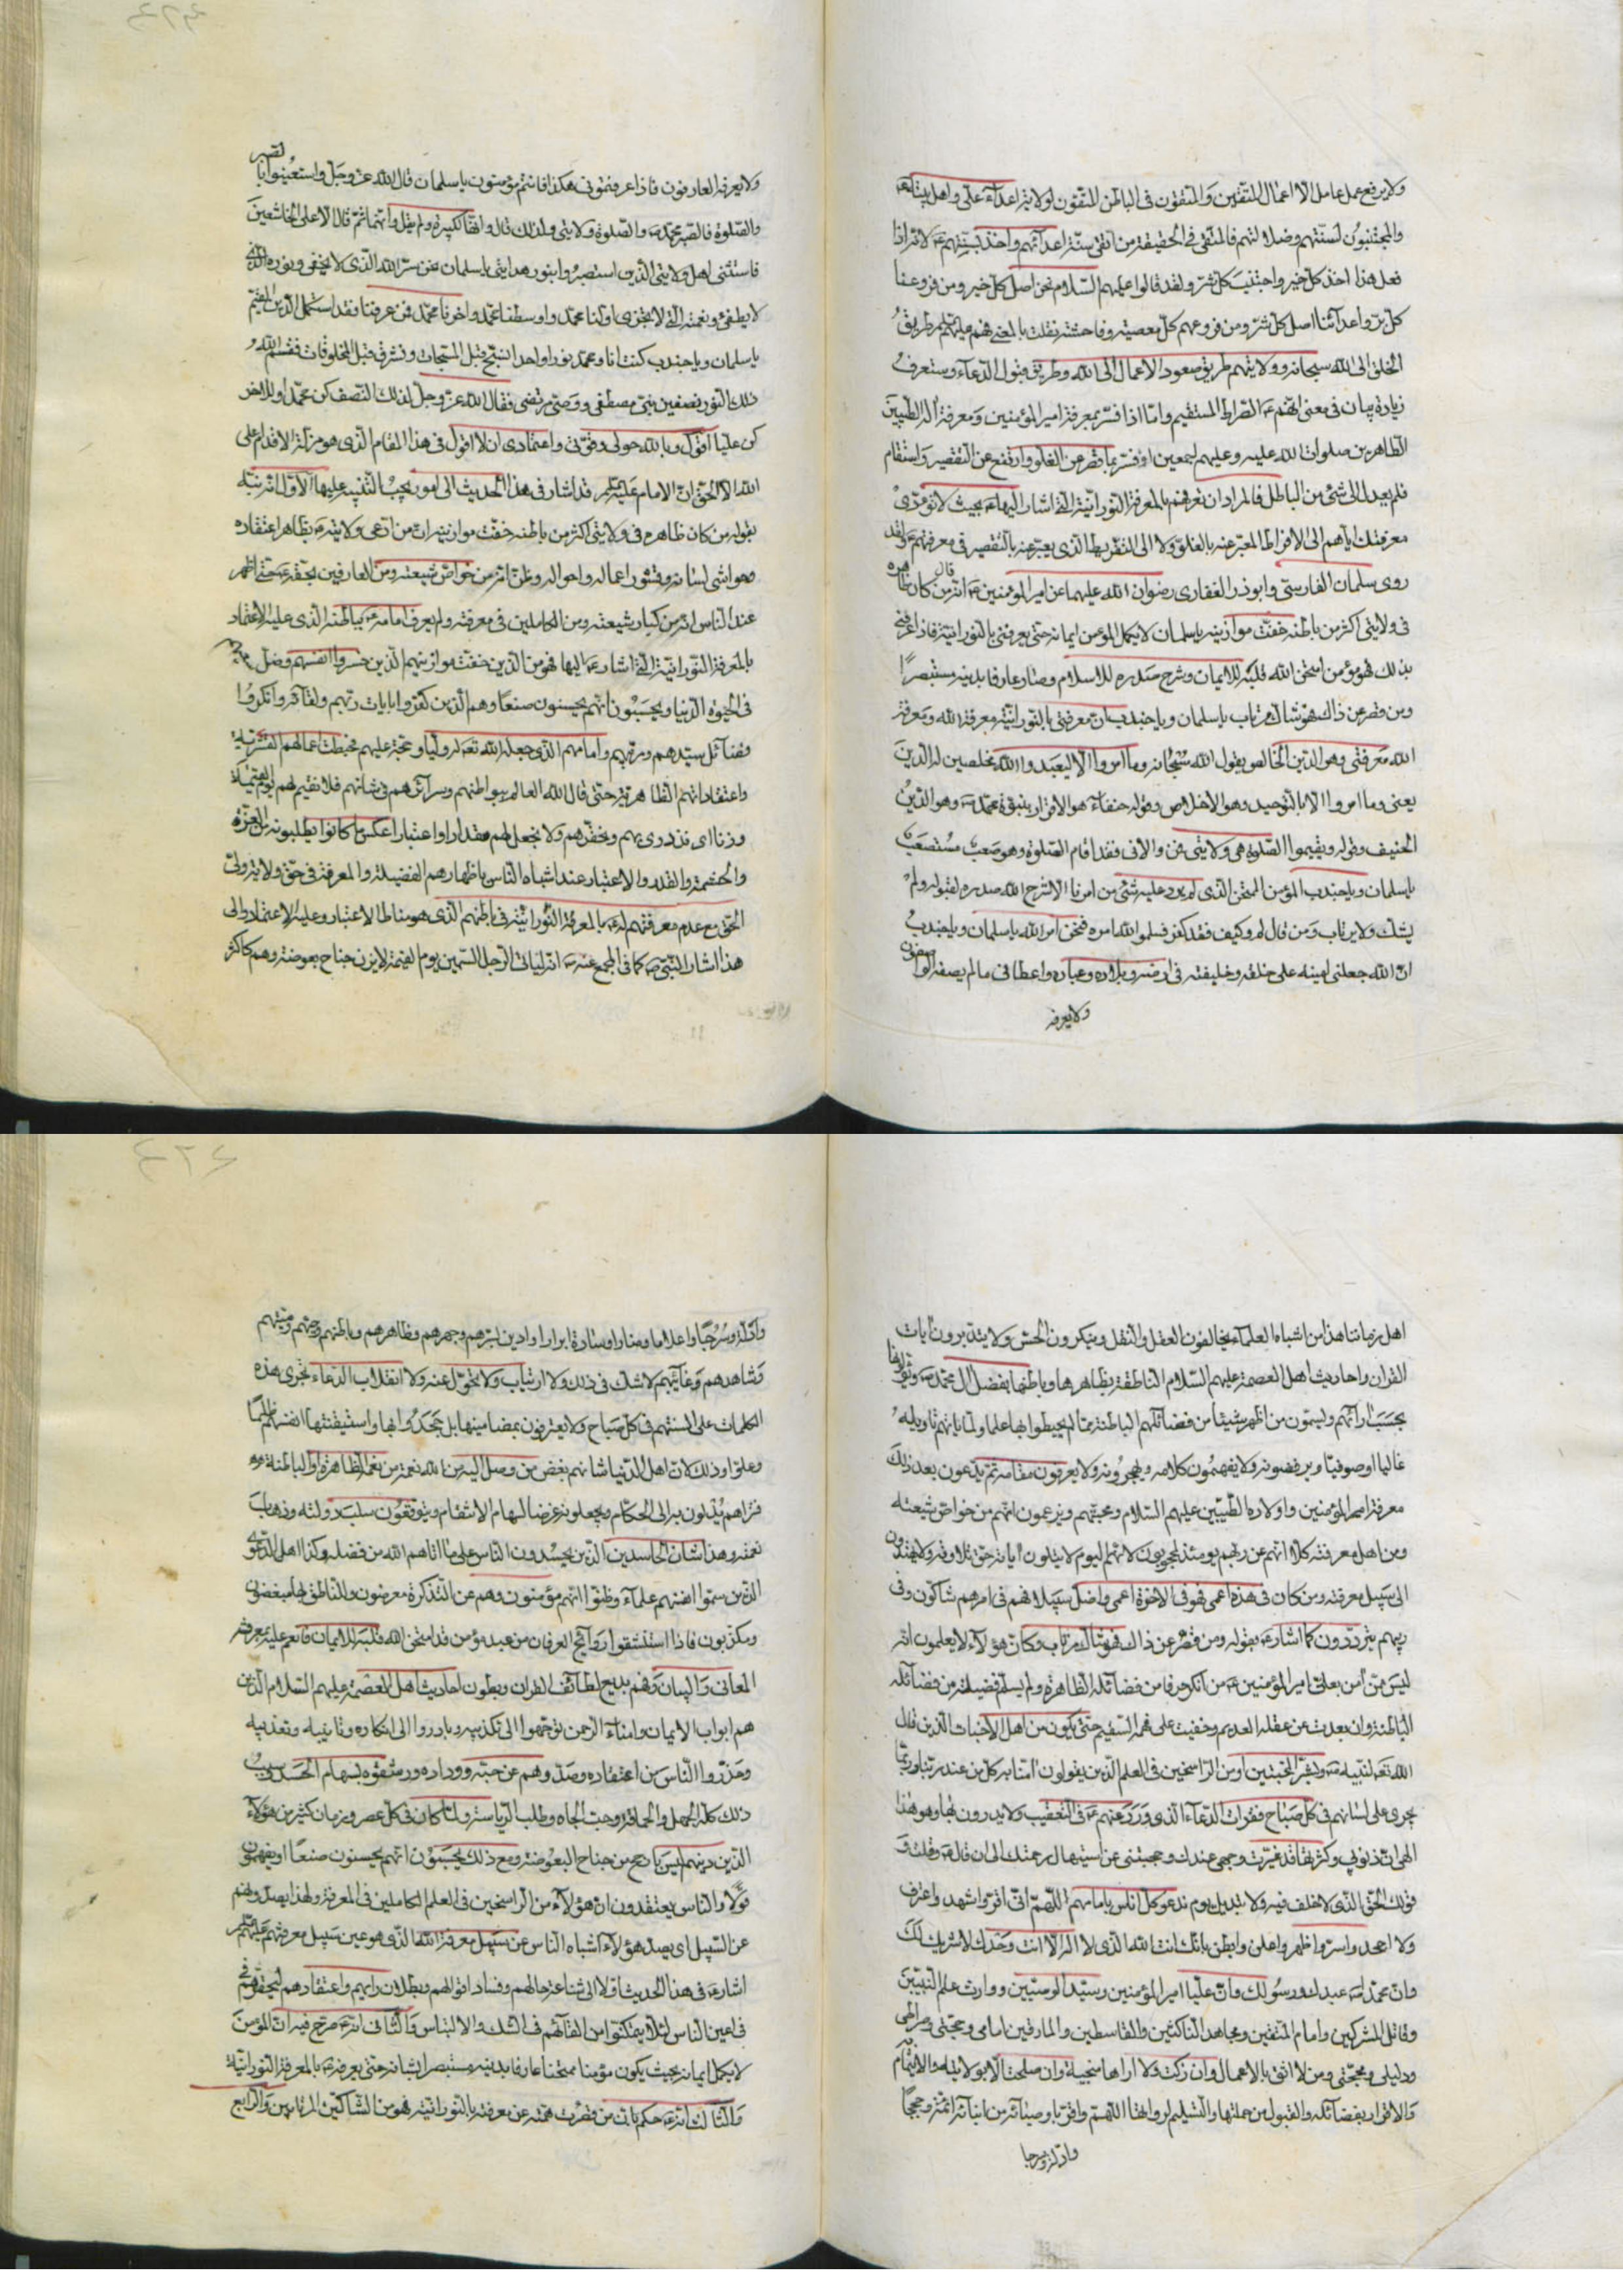 ولا يرفع عمل عامل الا اعمال المتقين والمتقون فى الباطن المتقون لولاية اعداء على واهل بيته ع
والمجتنبون لسنتهم وضلالتهم فالمتقى فى الحقيقة من اتقى سنة اعدائهم واخذ بسنتهم ع لانه اذا
فعل هذا اخذ كل خير واجتنب كل شر ولقد قالوا عليهم السلام نحن اصل كل خير ومن فروعنا
كل بر واعدائنا اصل كل شر ومن فروعهم كل معصية وفاحشة نقلت بالمعنى فهم عليهم طريق
الخلق الى الله سبحانه وولايتهم طريق صعود الاعمال الى الله وطريق قبول الدعاء وستعرف
زيادة بيان فى معنى انهم ع الصراط المستقيم واما اذا فسر بمعرفة امير المؤمنين ومعرفة آله الطيبين
الطاهرين صلوات الله عليه وعليهم اجمعين او فسر بما قصر عن الغلو وارتفع عن التقصير واستقام
فلم يعدل الى شئ من الباطل فالمراد ان تعرفهم بالمعرفة النورانية التى اشار اليها ع بحيث لا تؤدى
معرفتك اياهم الى الافراط المعبر عنه بالغلو ولا الى التفريط الذى يعبر عنه بالتقصير فى معرفتهم ع ولقد
روى سلمان الفارسى وابوذر الغفارى رضوان الله عليهما عن امير المؤمنين ع انه قال من كان ظاهره
فى ولايتى اكثر من باطنه خفت موازينه يا سلمان لا يكمل المؤمن ايمانه حتى يعرفنى بالنورانية فاذا عرفنى
بذلك فهو مؤمن امتحن الله قلبه للايمان وشرح صدره للاسلام وصار عارفا بدينه مستبصرا
ومن قصر عن ذلك فهو شاك مرتاب يا سلمان ويا جندب ان معرفتى بالنورانية معرفة الله ومعرفة
الله معرفتى وهو الدين الخالص بقول الله سبحانه وما امروا الا ليعبدوا الله مخلصين له الدين
يعنى وما امروا الا بالتوحيد وهو الاخلاص وقوله حنفاء هو الاقرار بنبوة محمد ص وهو الدين
الحنيف وقوله ويقيموا الصلوة هى ولايتى فمن والانى فقد اقام الصلوة وهو صعب مستصعب
يا سلمان ويا جندب المؤمن الممتحن الذى لم يرد عليه شئ من امرنا الا شرح الله صدره لقبوله ولم
يشك ولا يرتاب ومن قال لم وكيف فقد كفر فسلموا الله امره فنحن امر الله يا سلمان ويا جندب
ان الله جعلنى امينه على خلقه وخليفته فى ارضه وبلاده وعباده واعطانى ما لم يصفه الواصفون
ولا يعرفه
ولا يعرفه العارفون فاذا عرفتمونى هكذا فانتم مؤمنون يا سلمان قال الله عز وجل واستعينوا بالصبر
والصلوة فالصبر محمد ص والصلوة ولايتى ولذلك قال وانها لكبيرة ولم يقل وانهما ثم قال الا على الخاشعين
فاستثنى اهل ولايتى الذين استبصروا بنور هدايتى يا سلمان نحن سر الله الذى لا يخفى ونوره الذى
لا يطفى ونعمته التى لا تجزى اولنا محمد واوسطنا محمد واخرنا محمد فمن عرفنا فقد استكمل الدين القيم
يا سلمان ويا جندب كنت انا ومحمد نورا واحدا نسبح قبل المسبحات ونشرق قبل المخلوقات فقسم الله
ذلك النور نصفين نبى مصطفى ووصى مرتضى فقال الله عز وجل لذلك النصف كن محمد اوللاخر
كن عليا اقول وبالله حولى وقوتى واعتمادى ان لا اقول فى هذا المقام الذى هو مزلة الاقدام على
الله الا الحق ان الامام عليه السلام قد اشار فى هذا الحديث الى امور يجب التنبيه عليها الاول انه نبه
بقوله من كان ظاهره فى ولايتى اكثر من باطنه خفت موازينه ان من ادعى ولايته ع بظاهر اعتقاده
وحواشى لسانه وقشور اعماله واحواله وظن انه من خواص شيعته ومن العارفين بحقه ع حتى اظهر
عند الناس انه من كبار شيعته ومن الكاملين فى معرفته ولم يعرف امامه ع بباطنه الذى عليه الاعتماد
بالمعرفة النورانية التى اشار ع اليها فهو من الذين خفت موازينهم الذين خسروا انفسهم وضل سعيهم
فى الحيوة الدنيا ويحسبون انهم يحسنون صنعا وهم الذين كفروا بايات ربهم ولقائه وانكروا
فضائل سيدهم ومربيهم وامامهم الذى جعله الله تعالى له وليا وحجة عليهم فحبطت اعمالهم القشرية
واعتقاداتهم الظاهرية حتى قال الله العالم ببواطنهم وسرائرهم فى شانهم فلا نقيم لهم يوم القيمة
وزنا اى نزدرى بهم ونحقرهم ولا نجعل لهم مقدارا واعتبارا عكس ما كانوا يطلبونه من العزة
والحشمة والقدر والاعتبار عند اشباه الناس باظهارهم الفضيلة والمعرفة فى حق ولاية ولى
الحق مع عدم معرفتهم له ع بالمعرفة النورانية فى باطنهم الذى هو مناط الاعتبار وعليه الاعتماد والى
هذا اشار النبى ص كما فى المجمع عنه ص انه لياتى الرجل السمين يوم القيمة لا يزن جناح بعوضة وهم كاكثر
اهل زماننا هذا من اشباه العلماء يخالفون العقل والنقل وينكرون الحس ولا يتدبرون ايات
القران واحاديث اهل العصمة عليهم السلام الناطقة بظاهرها وباطنها بفضل ال محمد ص ويؤلونها
بحسب ارائهم ويسمون من اظهر شيئا من فضائلهم الباطنة مما لم يحيطوا بها علما ولما ياتهم تاويله
غاليا او صوفيا ويرفضونه ولا يفهمون كلامه ويهجرونه ولا يعرفون مقامه ثم يدعون بعد ذلك
معرفة امير المؤمنين واولاده الطيبين عليهم السلام ومحبتهم ويزعمون انهم من خواص شيعته
ومن اهل معرفته كلا انهم عن ربهم يومئذ لمحجوبون لانهم اليوم لا يتلون اياته حق تلاوته ولا يهتدون
الى سبيل معرفته ومن كان فى هذه اعمى فهو فى الاخرة اعمى واضل سبيلا فهم فى امرهم شاكون وفى
ريبهم يترددون كما اشار ع بقوله ومن قصر عن ذلك فهو شاك مرتاب وكان هؤلاء لا يعلمون انه
ليس ممن امن بعلى امير المؤمنين ع من انكر حرفا من فضائله الظاهرة ولم يسلم فضيلة من فضائله
الباطنة وان بعدت عن عقله العديم وخفيت على فهمه السقيم حتى يكون من اهل الاخبات الذين قال
الله تعالى لنبيه ص وبشر المخبتين ومن الراسخين فى العلم الذين يقولون امنا به كل من عند ربنا وربما
يجرى على لسانهم فى كل صباح فقرات الدعاء الذى ورد عنهم ع فى التعقيب ولا يدرون بها وهو هذا
الهى ان ذنوبى وكثرتها قد غيرت وجهى عندك وحجبتنى عن استيهال رحمتك الى ان قال ع وقلت و
قولك الحق الذى لا خلف فيه ولا تبديل يوم ندعو كل اناس بامامهم اللهم انى اقر واشهد واعترف
ولا اجحد واسر واظهر واعلن وابطن بانك انت الله الذى لا اله الا انت وحدك لا شريك لك
وان محمدا ص عبدك ورسولك وان عليا امير المؤمنين وسيد الوصيين ووارث علم النبيين
وقاتل المشركين وامام المتقين ومجاهد الناكثين والقاسطين والمارقين امامى وحجتى وصراطى
ودليلى ومحجتى ومن لا اثق بالاعمال وان زكت ولا اراها منجية وان صلحت الا بولايته والايتمام به
والاقرار بفضائله والقبول من حملتها والتسليم لرواتها اللهم واقر باوصيائه من ابنائه ائمة وحججا
وادلة وسرجا
وادلة وسرجا واعلاما ومنارا وسادة ابرارا وادين بسرهم وجهرهم وظاهرهم وباطنهم وحيهم وميتهم
وشاهدهم وغائبهم لا شك فى ذلك ولا ارتياب ولا تحول عنه ولا انقلاب الدعاء تجرى هذه
الكلمات على السنتهم فى كل صباح ولا يعترفون بمضامينها بل جحدوا بها واستيقنتها انفسهم ظلما
وعلوا وذلك لان اهل الدنيا شانهم بغض من وصل اليه من الله نعمة من نعمه الظاهرة او الباطنة
فتراهم يدلون به الى الحكام ويجعلونه غرضا لسهام الانتقام ويتوقعون سلب دولته وذهاب
نعمته وهذا شان الحاسدين الذين يحسدون الناس على ما اتاهم الله من فضله وكذا اهل الدعوى
الذين سموا انفسهم علماء وظنوا انهم مؤمنون وهم عن التذكرة معرضون وللناطق بها مبغضون
ومكذبون فاذا استنشقوا روائح العرفان من عبد مؤمن قد امتحن الله قلبه للايمان وانعم عليه بمعرفة
المعانى والبيان وفهم بديع لطائف القران وبطون احاديث اهل العصمة عليهم السلام الذين
هم ابواب الايمان وامناء الرحمن توجهوا الى تكذيبه وبادروا الى انكاره وتانيبه وتعذيبه
وحذروا الناس من اعتقاده وصدوهم عن حبه ووداده ورشقوه بسهام الحسد وسبب
ذلك كله الجهل والحماقة وحب الجاه وطلب الرياسة ولما كان فى كل عصر وزمان كثير من هؤلاء
الذين دينهم ليس بارجح من جناح البعوضة ومع ذلك يحسبون انهم يحسنون صنعا
والناس يعتقدون ان هؤلاء من الراسخين فى العلم الكاملين فى المعرفة ولهذا يصدونهم
عن السبيل اى يصد هؤلاء اشباه الناس عن سبيل معرفة الله الذى هو عين سبيل معرفتهم عليهم
اشار ع فى هذا الحديث اولا الى شناعة حالهم وفساد اقوالهم وبطلان رايهم واعتقادهم ليحقرهم
فى اعين الناس لئلا يتمكنوا من القائهم فى الشك والالتباس والثانى انه ع صرح فيه ان المؤمن
لا يكمل ايمانه بحيث يكون مؤمنا ممتحنا عارفا بدينه مستبصرا بشانه حتى يعرفه ع بالمعرفة النورانية
والثالث انه ع حكم بان من قصرت همته عن معرفته بالنورانية فهو من الشاكين المرتابين والرابع